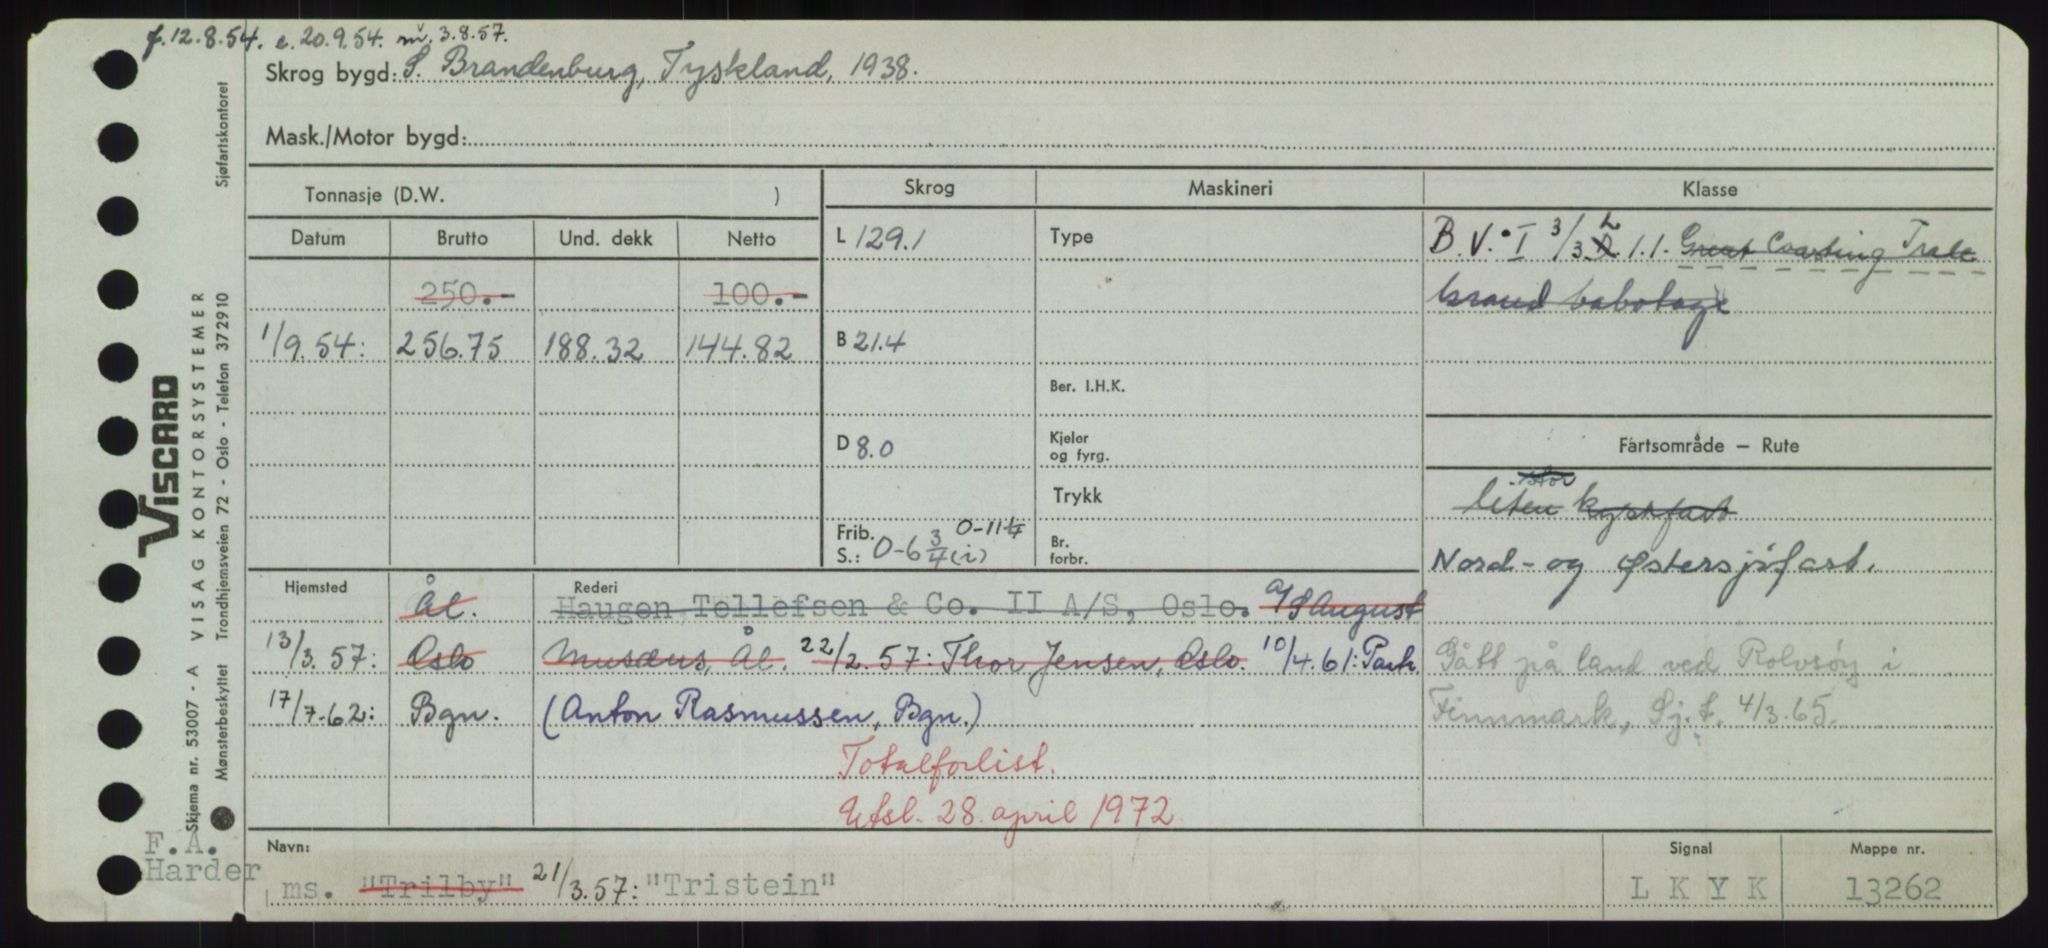 f. 12.8.54. e. 20.9.54. m. 3.8.57.
Skrog bygd: S. Brandenburg, Tyskland, 1938.
Mask./Motor bygd:
Tonnasje (D.W. )
Datum Brutto Und. dekk Netto
250.- 100.-
1/9.54: 256.75 188.32 144.82
Skrog
L 129.1
B 21.4
D 8.0
Frib. 0-11 1/4
S.: 0-6 3/4 (i)
Maskineri
Type
Ber. I.H.K.
Kjeler
og fyrg.
Trykk
Br.
forbr.
Klasse
B.V. • I 3/3 L 1.1. Great Coasting Trade
Fartsområde — Rute
stor
liten kystfart
Nord- og Østersjøfart.
Gått på land ved Rolvsøy i
Finnmark, Sj.f. 4/3.65.
Hjemsted Rederi
Ål. Haugen Tellefsen & Co. II A/S, Oslo. a/s August
13/3.57: Oslo Musæus, Ål. 22/2.57: Thor Jensen, Oslo. 10/4.61: Partr.
17/7-62: Bgn. (Anton Rasmussen, Bgn.)
Totalforlist.
Utsl. 28. april 1972
Navn:
ms. "Trilby" 21/3.57: "Tristein"
Signal
L K Y K
Mappe nr.
13262
F.A.
Harder
VISCARD
Skjema nr. 53007 - A VISAG KONTORSYSTEMER
Mønsterbeskyttet Trondhjemsveien 72 - Oslo - Telefon 372910
Sjøfartskontoret